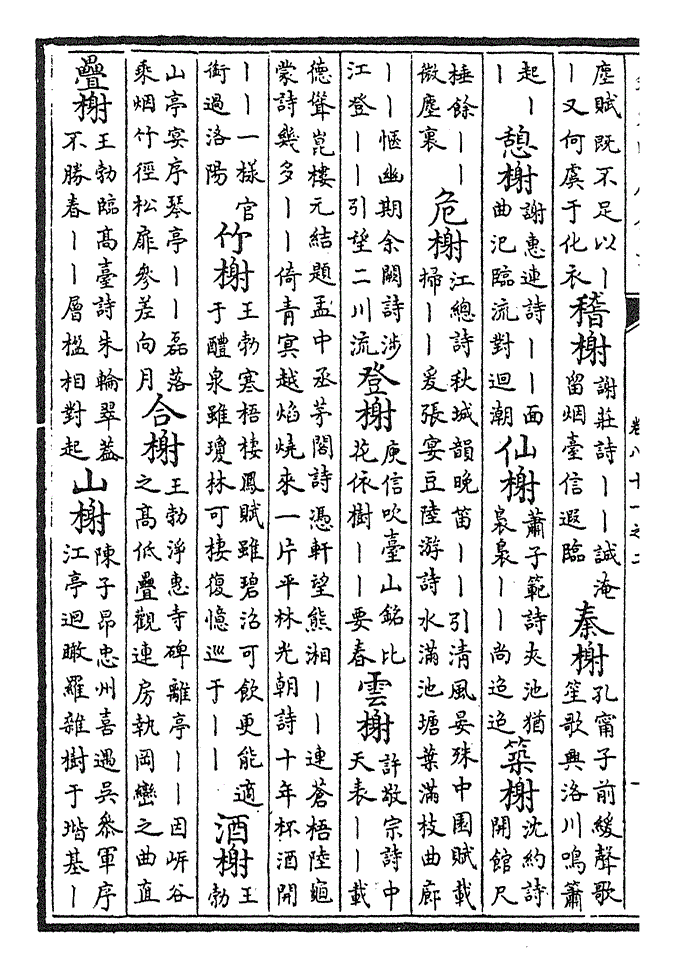 塵賦既不足以｜｜又何虞于化衣 稽榭 謝莊詩｜｜誠淹留烟臺信遐臨 秦榭 孔甯子前緩聲歌笙歌興洛川鳴簫
起｜｜ 憩榭 謝惠連詩｜｜面曲汜臨流對迴潮 仙榭 蕭子範詩夾池猶裊裊｜｜尚迢迢 築榭 沈約詩開館尺
捶餘｜｜微塵裏 危榭 江總詩秋城韻晚笛｜｜引清風晏殊中園賦載掃｜｜爰張宴豆陸游詩水滿池塘葉滿枝曲廊
｜｜愜幽期余闕詩涉江登｜｜引望二川流 登榭 庾信吹臺山銘比花依樹｜｜要春 雲榭 許敬宗詩中天表｜｜載
德聳崑樓元結題孟中丞茅閣詩憑軒望熊湘｜｜連蒼梧陸龜蒙詩幾多｜｜倚青冥越焰燒來一片平林光朝詩十年杯酒開
｜｜一樣官銜過洛陽 竹榭 王勃寒梧棲鳳賦雖碧沼可飲更能適于醴泉雖瓊林可棲復憶巡于｜｜ 酒榭 王勃
山亭宴序琴亭｜｜磊落乘烟竹徑松扉參差向月 合榭 王勃淨惠寺碑離亭｜｜因岍谷之高低疊觀連房執岡巒之曲直
疊榭 王勃臨高臺詩朱輪翠蓋不勝春｜｜層楹相對起 山榭 陳子昂忠州喜遇吳參軍序江亭迴瞰羅雜樹于堦基｜